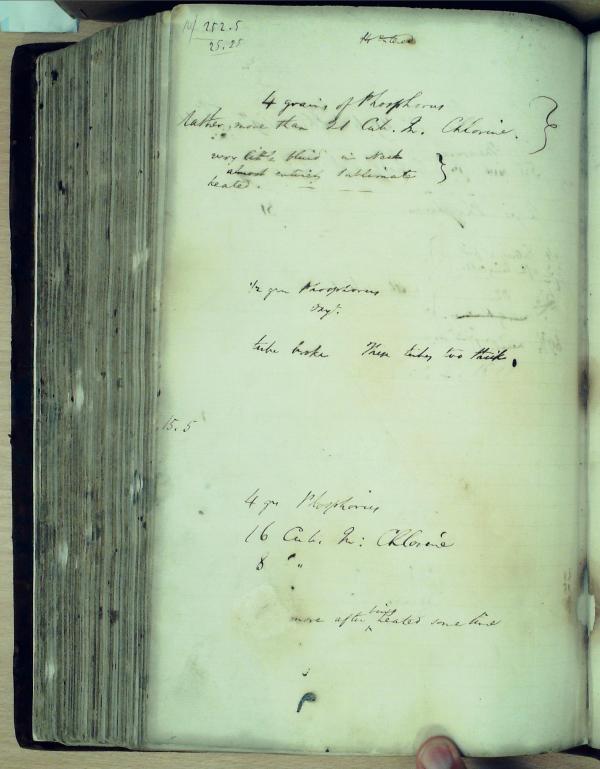 252.5
25.25
4 grains of Phosphorus
Rather more than 21 Cub. In. Chlorine.
very little fluid in Neck
almost entirely Sublimate
heated.
1/2 grn Phosphorus
Oxyn.
tube broke These tubes too thick.
15.5
4 grs Phosphorus
16 Cub. In: Chlorine
8 " "
more after being heated some time